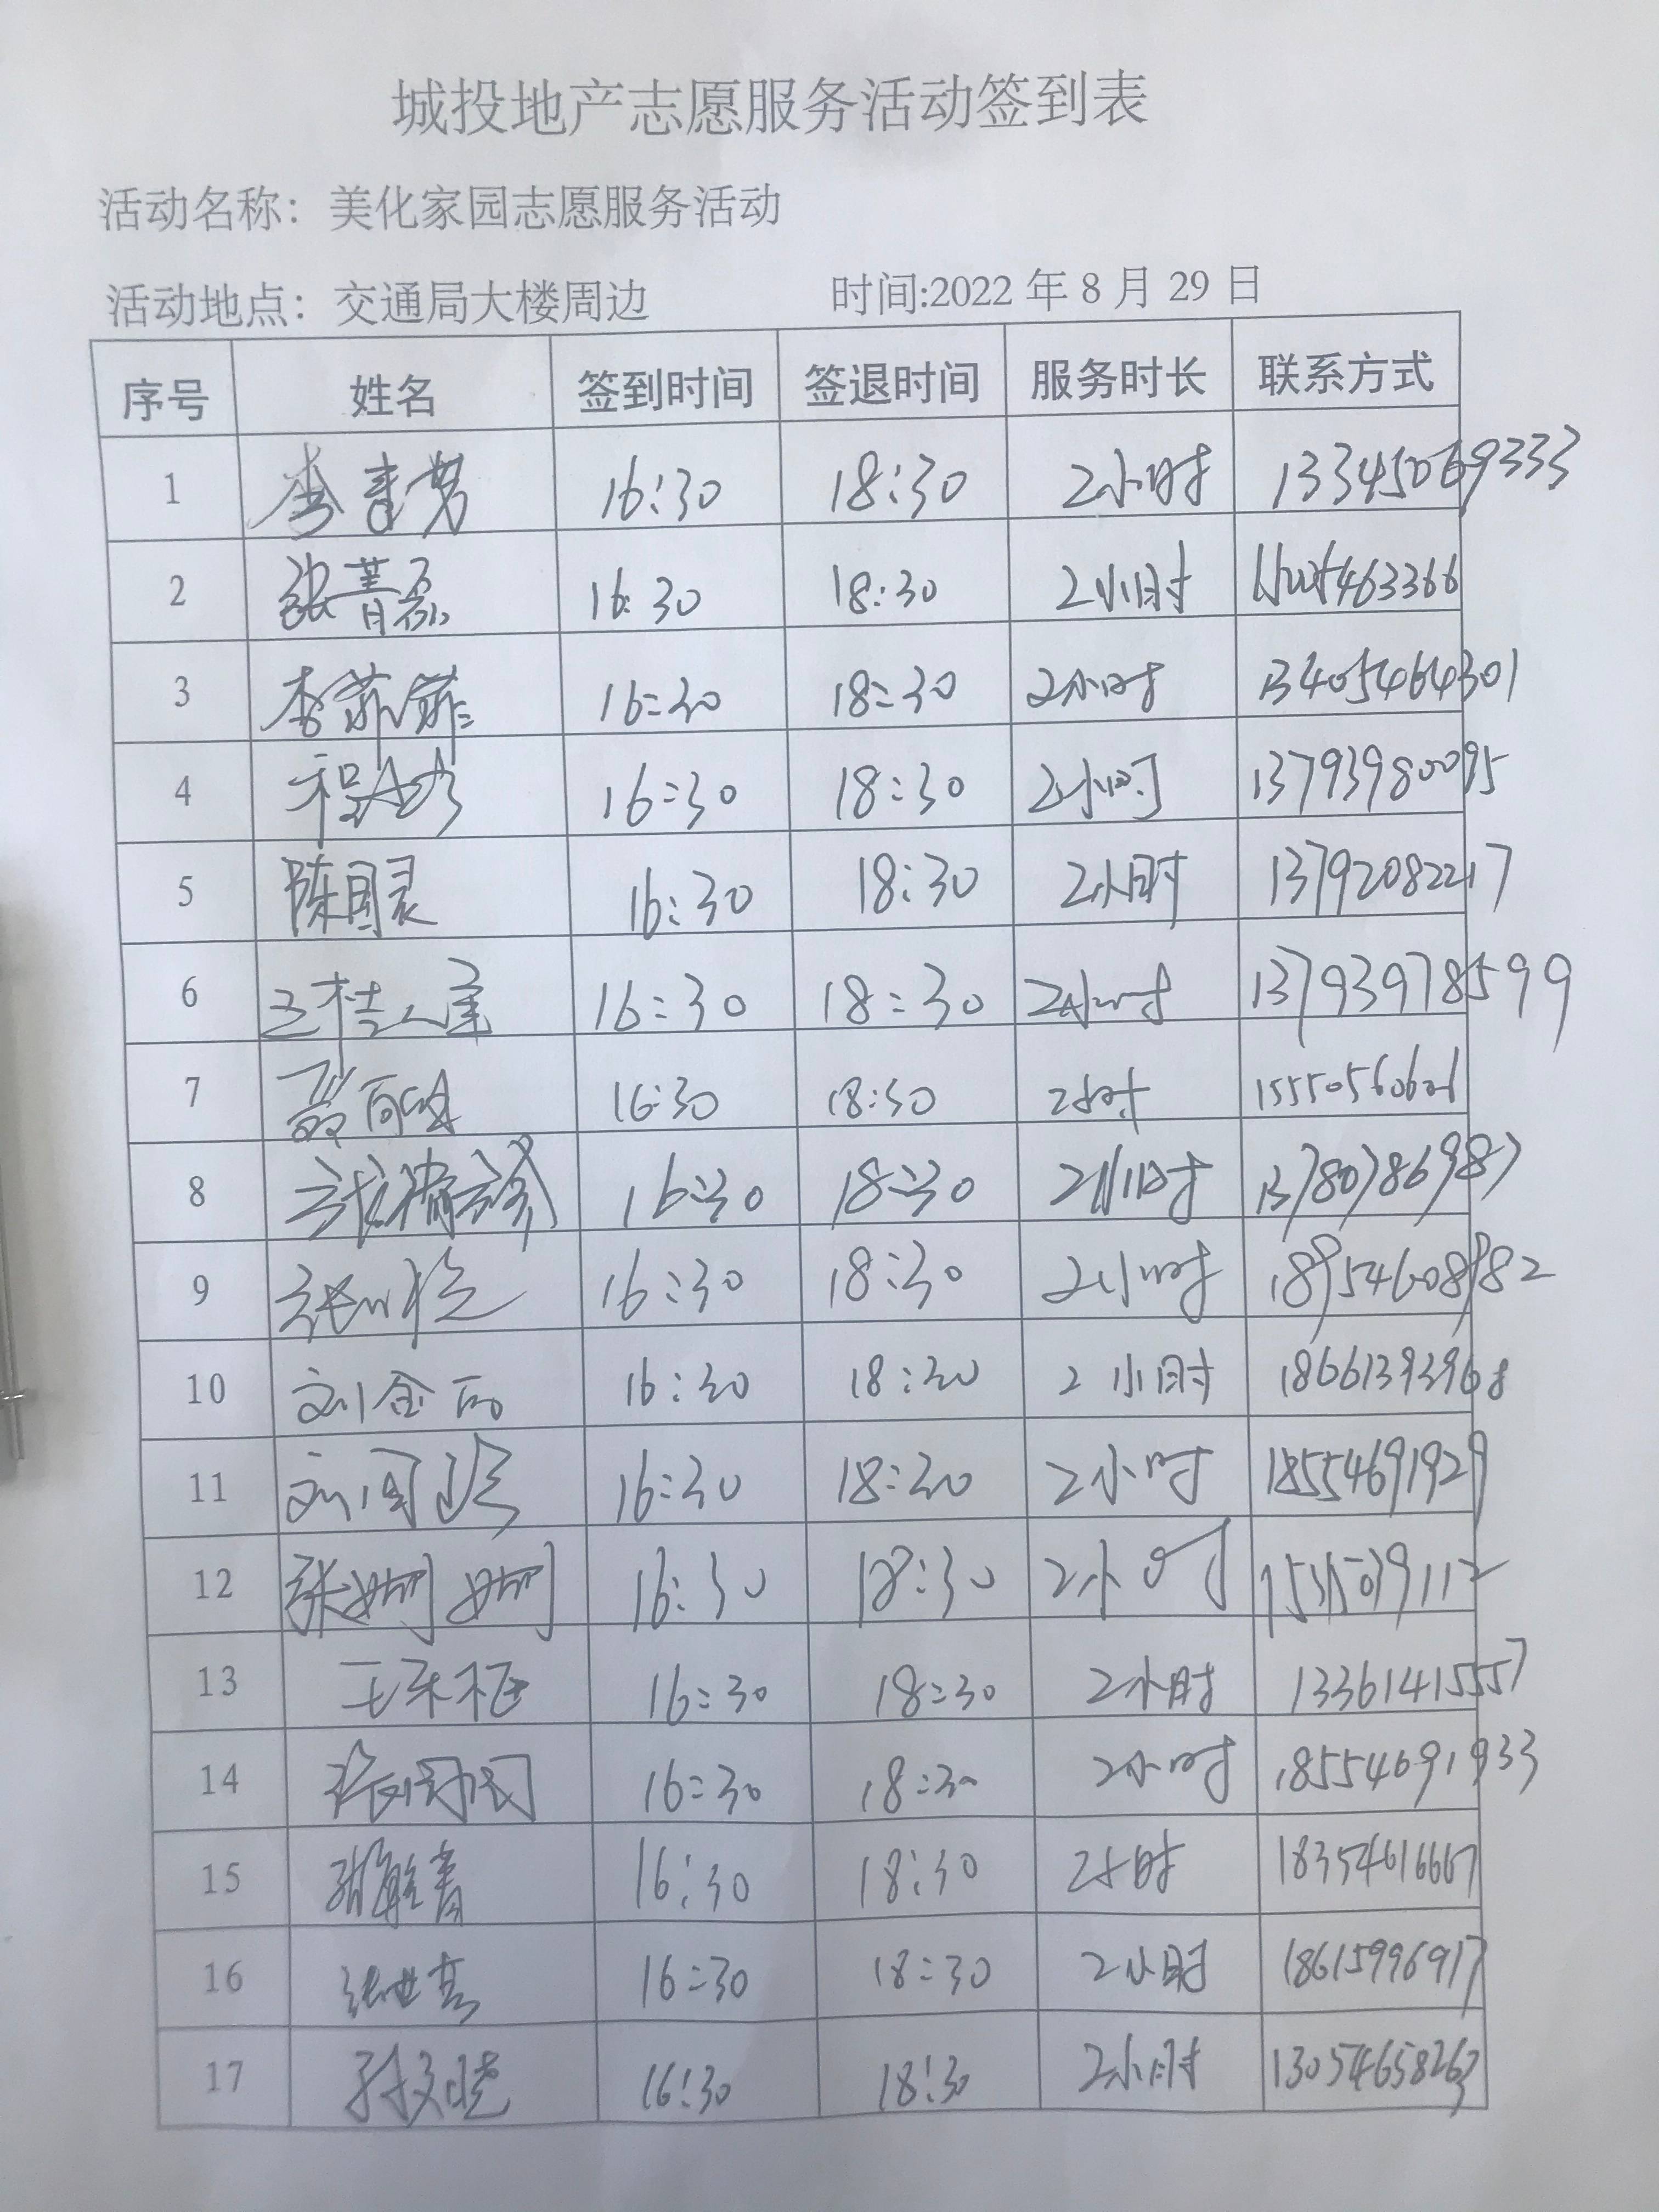 城投地产志愿服务活动签到表
活动名称：美化家园志愿服务活动
活动地点：交通局大楼周边 时间:2022 年 8 月 29 日
序号 姓名 签到时间 签退时间 服务时长 联系方式
1 李青男 16:30 18:30 2小时 13345069333
2 张菁磊 16:30 18:30 2小时
3 李菲菲 16:30 18:30 2小时 13405464301
4 16:30 18:30 2小时 13793980095
5 陈国灵 16:30 18:30 2小时 13792082217
6 16:30 18:30 2小时 13793978599
7 16:30 18:30 2小时 15550560601
8 16:30 18:30 2小时 13780786987
9 16:30 18:30 2小时 18954608982
10 刘金 16:30 18:30 2小时 18661393968
11 刘国珍 16:30 18:30 2小时 18554691929
12 张娜娜 16:30 18:30 2小时
13 16:30 18:30 2小时 13361415557
14 16:30 18:30 2小时 18554691933
15 16:30 18:30 2小时 18354616667
16 张世 16:30 18:30 2小时 18615996917
17 孙文晓 16:30 18:30 2小时 13054658263